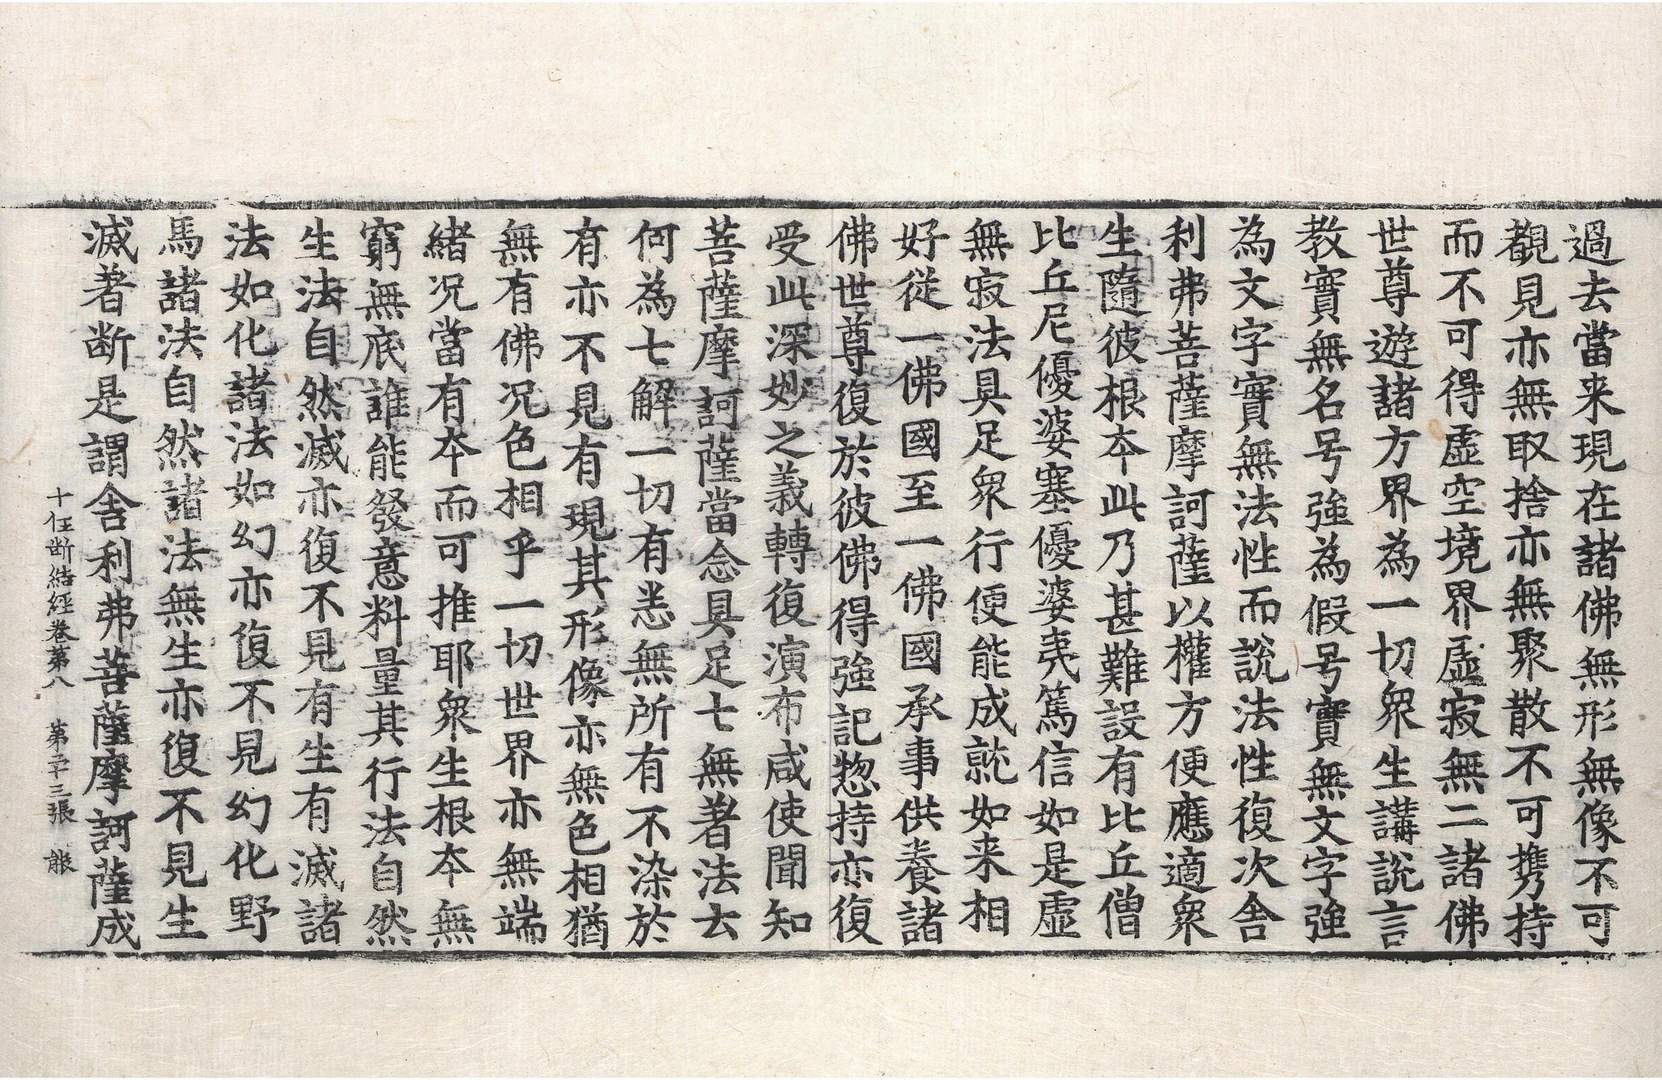 過去當来現在諸佛無形無像不可
觀見亦無取捨亦無聚散不可携持
而不可得虛空境界虛寂無二諸佛
世尊遊諸方界為一切衆生講說言
教實無名号強為假号實無文字強
為文字實無法性而說法性復次舍
利弗菩薩摩訶薩以權方便應適衆
生隨彼根本此乃甚難設有比丘僧
比丘尼優婆塞優婆夷篤信如是虛
無寂法具足衆行便能成就如来相
好從一佛國至一佛國承事供養諸
佛世尊復於彼佛得強記惣持亦復
受此深妙之義轉復演布咸使聞知
菩薩摩訶薩當念具足七無著法云
何為七解一切有悉無所有不染於
有亦不見有現其形像亦無色相猶
無有佛况色相乎一切世界亦無端
緒况當有本而可推耶衆生根本無
窮無底誰能發意料量其行法自然
生法自然滅亦復不見有生有滅諸
法如化諸法如幻亦復不見幻化野
馬諸法自然諸法無生亦復不見生
滅著断是謂舍利弗菩薩摩訶薩成
十住断結經卷第八　第二十三張　服